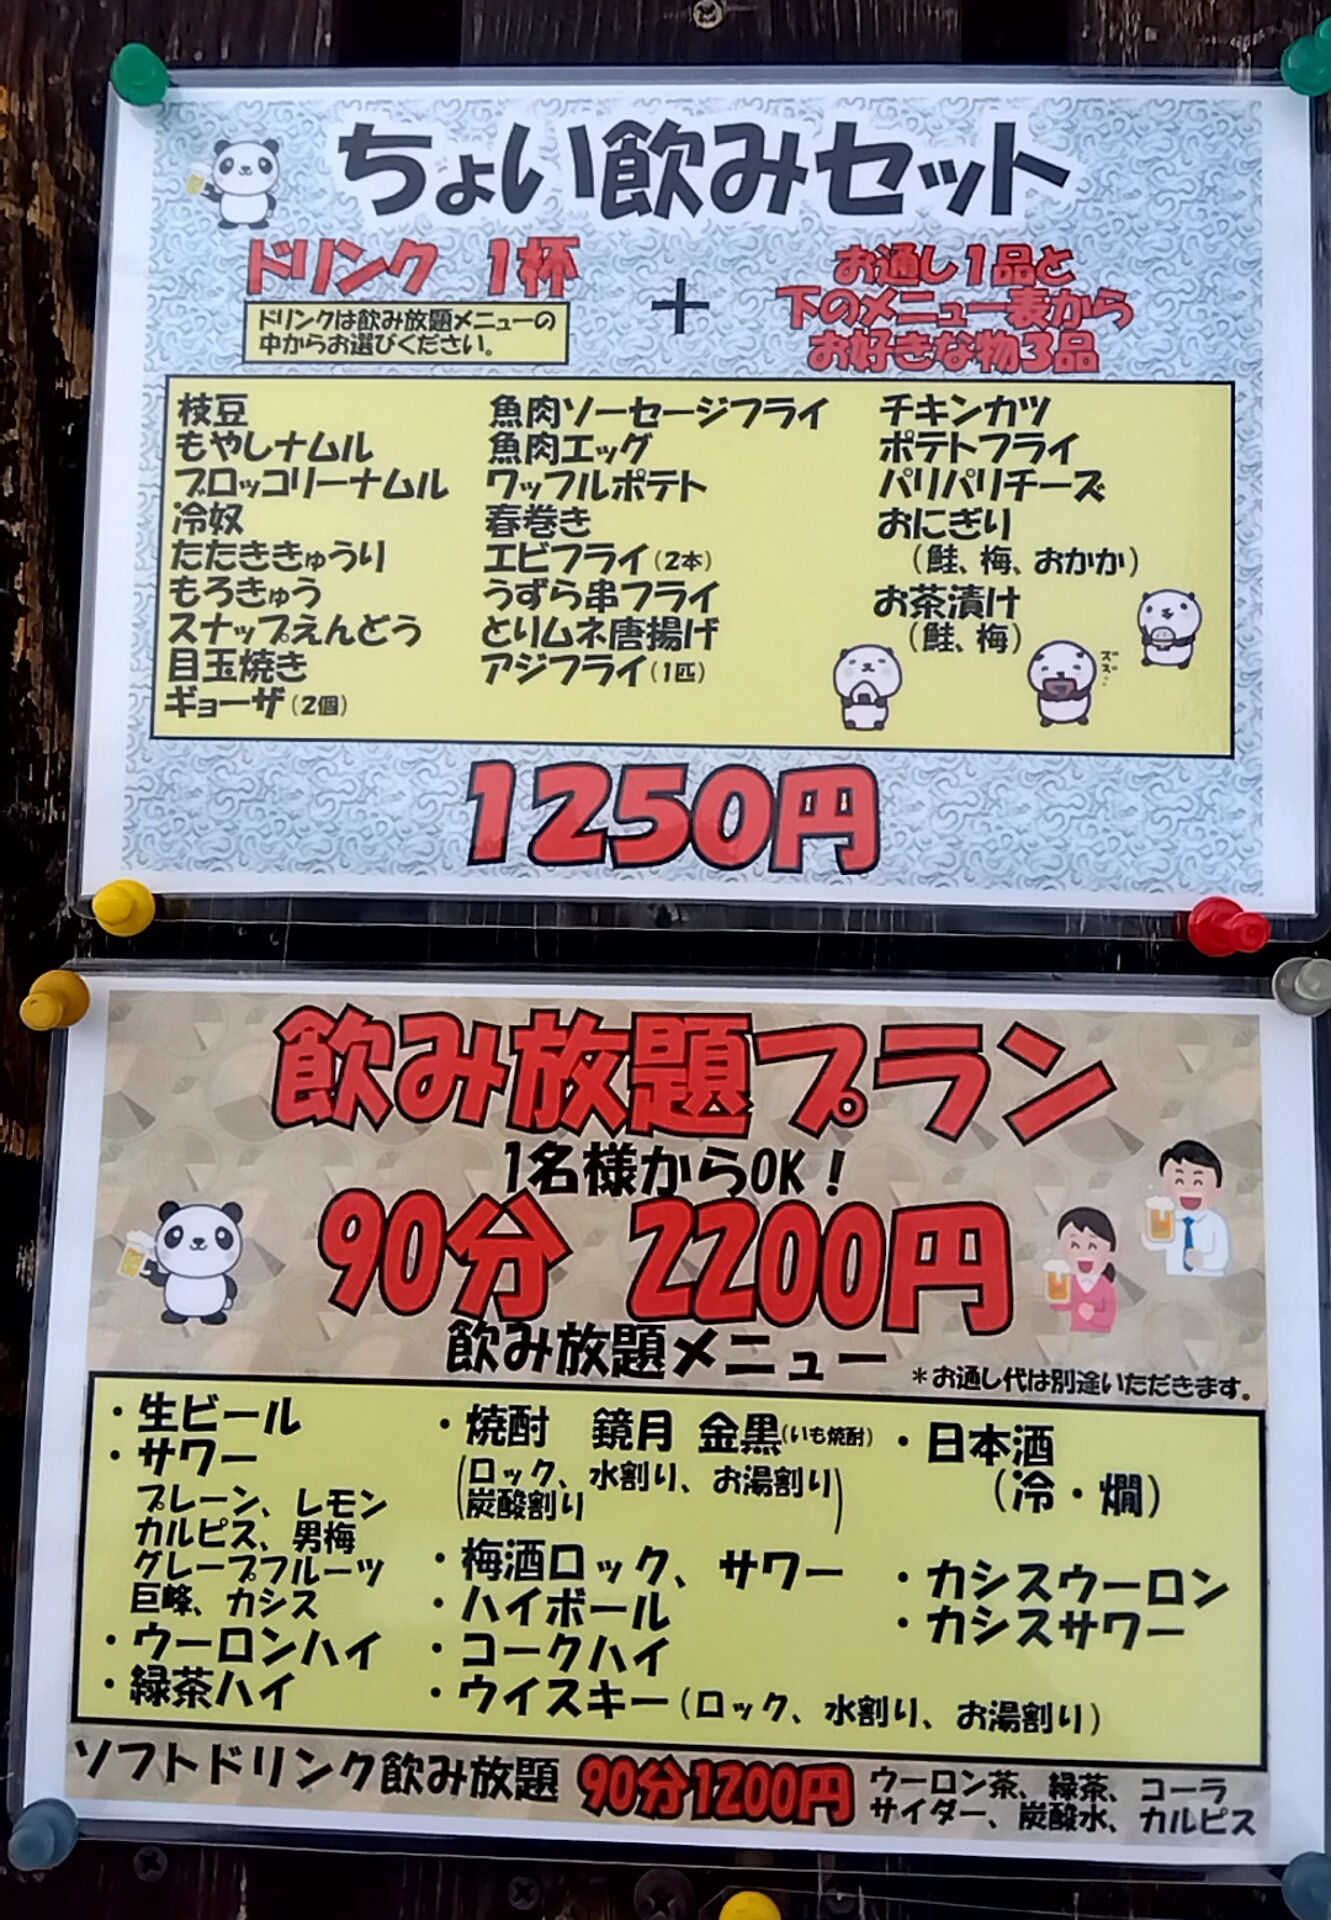 ちょい飲みセット
ドリンク 1杯
ドリンクは飲み放題メニューの
中からお選びください。
+
お通し1品と
下のメニュー表から
お好きな物3品
枝豆
もやしナムル
ブロッコリーナムル
冷奴
たたききゅうり
もろきゅう
スナップえんどう
目玉焼き
ギョーザ(2個)
魚肉ソーセージフライ
魚肉エッグ
ワッフルポテト
春巻き
エビフライ(2本)
うずら串フライ
とりムネ唐揚げ
アジフライ(1匹)
チキンカツ
ポテトフライ
パリパリチーズ
おにぎり
(鮭、梅、おかか)
お茶漬け
(鮭、梅)
ズズ…
1250円
飲み放題プラン
1名様からOK!
90分 2200円
飲み放題メニュー
*お通し代は別途いただきます。
・生ビール
・サワー
プレーン、レモン
カルピス、男梅
グレープフルーツ
巨峰、カシス
・ウーロンハイ
・緑茶ハイ
・焼酎 鏡月 金黒(いも焼酎)
(ロック、水割り、お湯割り
炭酸割り)
・梅酒ロック、サワー
・ハイボール
・コークハイ
・ウイスキー(ロック、水割り、お湯割り)
・日本酒
(冷・燗)
・カシスウーロン
・カシスサワー
ソフトドリンク飲み放題 90分1200円
ウーロン茶、緑茶、コーラ
サイダー、炭酸水、カルピス